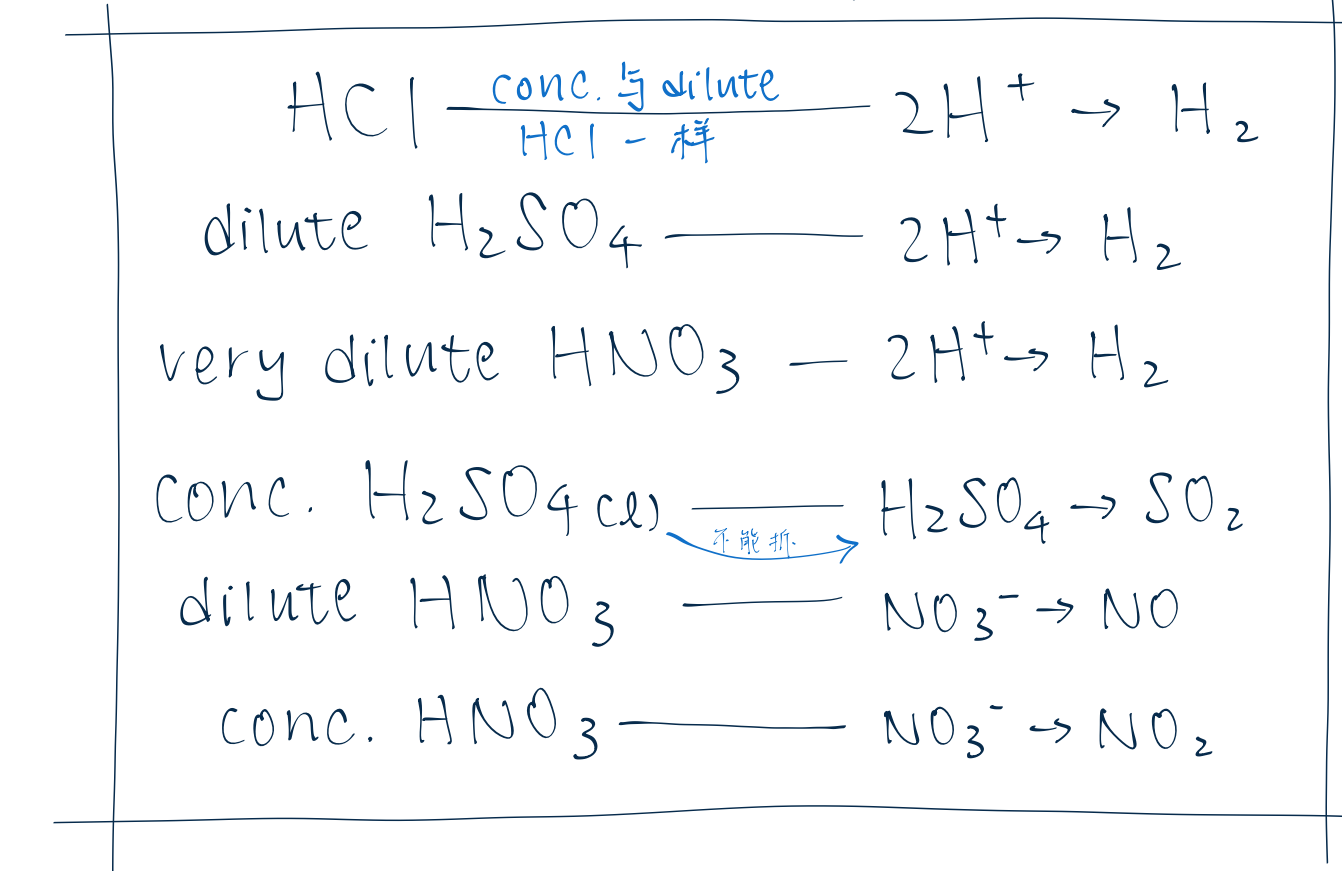 HCl conc. 与 dilute HCl 一样 2H⁺ → H₂
dilute H₂SO₄ — 2H⁺ → H₂
very dilute HNO₃ — 2H⁺ → H₂
conc. H₂SO₄(l) — H₂SO₄ → SO₂
不能折.
dilute HNO₃ — NO₃⁻ → NO
conc. HNO₃ — NO₃⁻ → NO₂